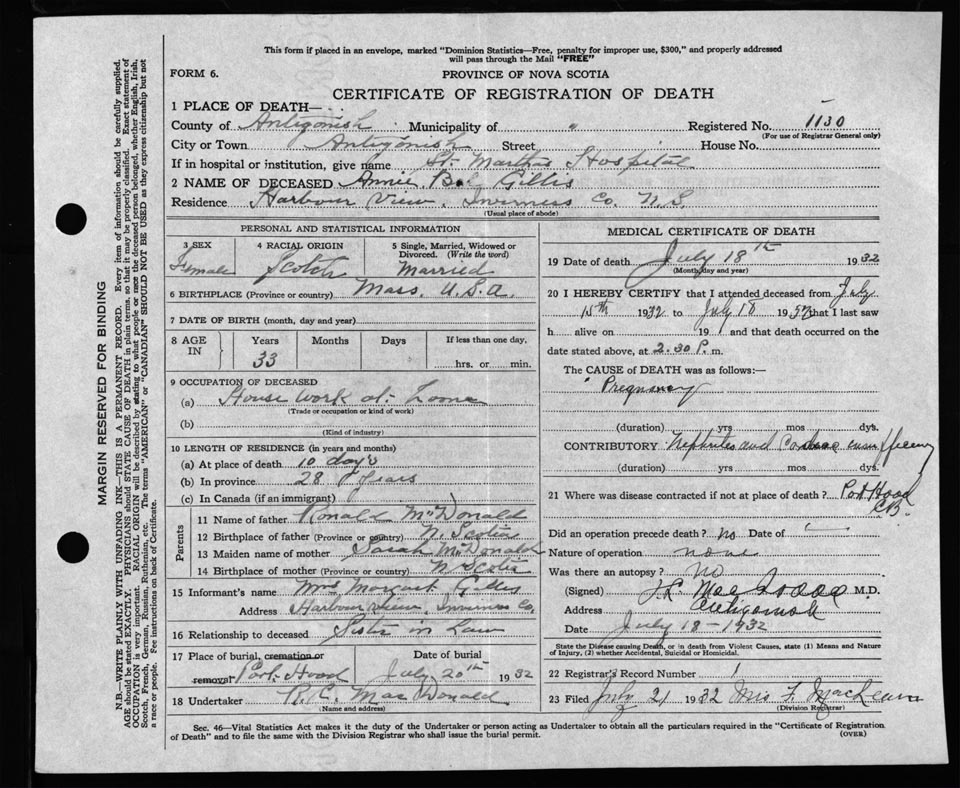 This form if placed in an envelope, marked "Dominion Statistics—Free, penalty for improper use, $300," and properly addressed
will pass through the Mail "FREE"
FORM 6.
PROVINCE OF NOVA SCOTIA
CERTIFICATE OF REGISTRATION OF DEATH
1 PLACE OF DEATH—
County of Antigonish Municipality of " Registered No. 1130
(For use of Registrar General only)
City or Town Antigonish Street House No.
If in hospital or institution, give name St. Marthas Hospital
2 NAME OF DECEASED Annie Gillis
Residence Harbour View, Inverness Co. N.S.
(Usual place of abode)
PERSONAL AND STATISTICAL INFORMATION
3 SEX 4 RACIAL ORIGIN 5 Single, Married, Widowed or
Divorced. (Write the word)
Female Scotch Married
6 BIRTHPLACE (Province or country) Mass. U.S.A.
7 DATE OF BIRTH (month, day and year)
8 AGE IN Years Months Days If less than one day,
33 hrs. or min.
9 OCCUPATION OF DECEASED
(a) House work at
(Trade or occupation or kind of work)
(b)
(Kind of industry)
10 LENGTH OF RESIDENCE (in years and months)
(a) At place of death 10 days
(b) In province 28 years
(c) In Canada (if an immigrant)
Parents
11 Name of father Ronald McDonald
12 Birthplace of father (Province or country) N. Scotia
13 Maiden name of mother Sarah McDonald
14 Birthplace of mother (Province or country) N Scotia
15 Informant's name Mrs Margaret Gillis
Address Harbour View, Inverness Co.
16 Relationship to deceased Sister in Law
17 Place of burial, cremation or Date of burial
removal Port Hood July 20th 1932
18 Undertaker R. C. MacDonald
(Name and address)
MEDICAL CERTIFICATE OF DEATH
19 Date of death July 18th 1932
(Month, day and year)
20 I HEREBY CERTIFY that I attended deceased from July
15th 1932 to July 18 19 that I last saw
h alive on 19 and that death occurred on the
date stated above, at 2.30 P. m.
The CAUSE of DEATH was as follows:—
Pregnancy
(duration) yrs mos dys.
CONTRIBUTORY Nephrites and Cardiac
(duration) yrs mos dys.
21 Where was disease contracted if not at place of death? Port Hood
C.B.
Did an operation precede death? no Date of
Nature of operation none
Was there an autopsy? no
(Signed) M.D.
Address Antigonish
Date July 18-1932
State the Disease causing Death, or in death from Violent Causes, state (1) Means and Nature
of Injury, (2) whether Accidental, Suicidal or Homicidal.
22 Registrar's Record Number 1
23 Filed July 21 1932 Mrs F. MacLean
(Division Registrar)
Sec. 46—Vital Statistics Act makes it the duty of the Undertaker or person acting as Undertaker to obtain all the particulars required in the "Certificate of Registration
of Death" and to file the same with the Division Registrar who shall issue the burial permit.
(OVER)
MARGIN RESERVED FOR BINDING
N.B.—WRITE PLAINLY WITH UNFADING INK—THIS IS A PERMANENT RECORD. Every item of information should be carefully supplied.
AGE should be stated EXACTLY. PHYSICIANS should STATE CAUSE OF DEATH in plain terms, so that it may be properly classified. Exact statement of
OCCUPATION is very important. RACIAL ORIGIN will be described by stating to what people or race the deceased person belonged, whether English, Irish,
Scotch, French, German, Russian, Ruthenian, etc. The terms "AMERICAN" or "CANADIAN" SHOULD NOT BE USED as they express citizenship but not
a race or people. See instructions on back of Certificate.